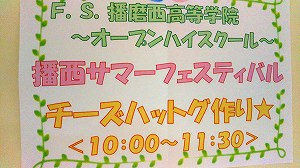 F．S．播磨西高等学院
～オープンハイスクール～
播西サマーフェスティバル
チーズハットグ作り★
＜10:00～11:30＞